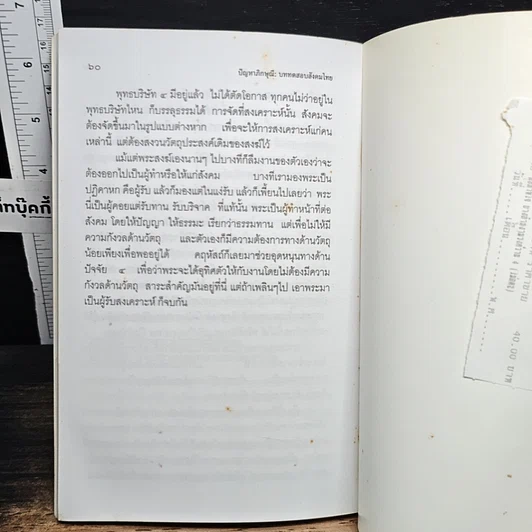 ๖๐
ปัญหาภิกษุณี: บททดสอบสังคมไทย
พุทธบริษัท ๔ มีอยู่แล้ว ไม่ได้ตัดโอกาส ทุกคนไม่ว่าอยู่ใน
พุทธบริษัทไหน ก็บรรลุธรรมได้ การจัดที่สงเคราะห์นั้น สังคมจะ
ต้องจัดขึ้นมาในรูปแบบต่างหาก เพื่อจะให้การสงเคราะห์แก่คน
เหล่านี้ แต่ต้องสงวนวัตถุประสงค์เดิมของสงฆ์ไว้
แม้แต่พระสงฆ์เองนานๆ ไป บางทีก็ลืมงานของตัวเองว่าจะ
ต้องออกไปเป็นผู้ทำหรือให้แก่สังคม บางทีเรามองพระเป็น
ปฏิคาหก คือผู้รับ แล้วก็มองแต่ในแง่รับ แล้วก็เพี้ยนไปเลยว่า พระ
นี่เป็นผู้คอยแต่รับทาน รับบริจาค ที่แท้นั้น พระเป็นผู้ทำหน้าที่ต่อ
สังคม โดยให้ปัญญา ให้ธรรมะ เรียกว่าธรรมทาน แต่เพื่อไม่ให้มี
ความกังวลด้านวัตถุ และตัวเองก็มีความต้องการทางด้านวัตถุ
น้อยเพียงเพื่อพออยู่ได้ คฤหัสถ์ก็เลยมาช่วยอุดหนุนทางด้าน
ปัจจัย ๔ เพื่อว่าพระจะได้อุทิศตัวให้กับงานโดยไม่ต้องมีความ
กังวลด้านวัตถุ สาระสำคัญมันอยู่ที่นี่ แต่ถ้าเพลินๆไป เอาพระมา
เป็นผู้รับสงเคราะห์ ก็จบกัน
40.00 บาท